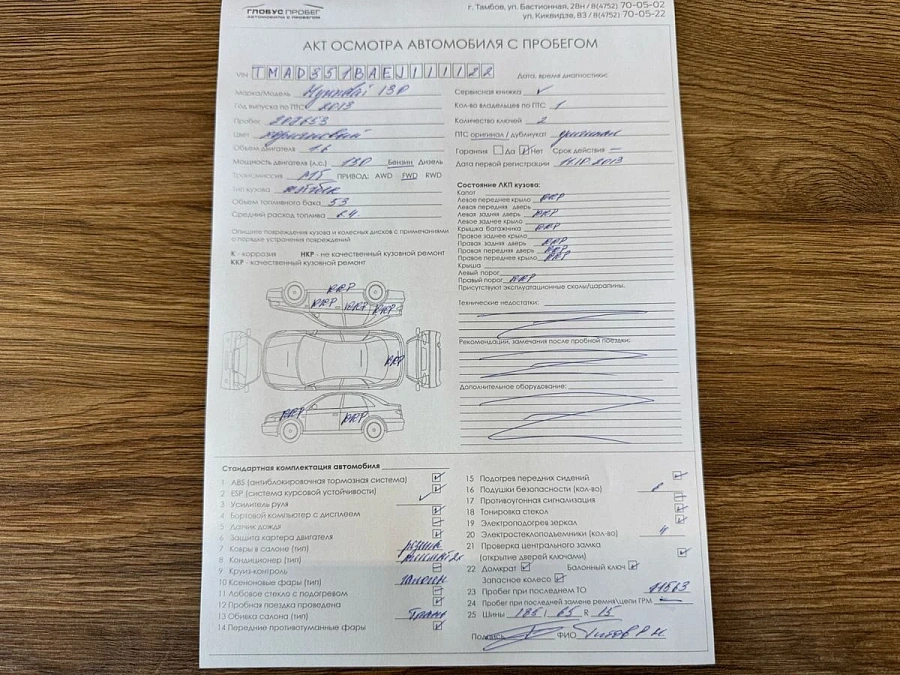 ГЛОБУС ПРОБЕГ
АВТОМОБИЛИ С ПРОБЕГОМ
г. Тамбов, ул. Бастионная, 28н / 8(4752) 70-05-02
ул. Киквидзе, 83 / 8(4752) 70-05-22
АКТ ОСМОТРА АВТОМОБИЛЯ С ПРОБЕГОМ
VIN TMAD351BAEJ111122
Марка/Модель Hyundai
Год выпуска по ПТС 2013
Пробег
Цвет коричневый
Объем двигателя 1.6
Мощность двигателя (л.с.) 130 Бензин Дизель
Трансмиссия ПРИВОД: AWD FWD RWD
Тип кузова хэтчбек
Объем топливного бака 53
Средний расход топлива 6.4
Опишите повреждения кузова и колесных дисков с примечаниями
о порядке устранения повреждений
К - коррозия НКР - не качественный кузовной ремонт
ККР - качественный кузовной ремонт
ККР
ККР ККР ККР
ККР
ККР ККР
Дата, время диагностики:
Сервисная книжка
Кол-во владельцев по ПТС 1
Количество ключей 2
ПТС оригинал / дубликат оригинал
Гарантия Да Нет Срок действия –
Дата первой регистрации 11.10.2013
Состояние ЛКП кузова:
Капот
Левое переднее крыло ККР
Левая передняя дверь
Левая задняя дверь ККР
Левое заднее крыло
Крышка багажника ККР
Правое заднее крыло
Правая задняя дверь ККР
Правая передняя дверь ККР
Правое переднее крыло ККР
Крыша
Левый порог
Правый порог ККР
Присутствуют эксплуатационные сколы/царапины.
Технические недостатки:
Рекомендации, замечания после пробной поездки:
Дополнительное оборудование:
Стандартная комплектация автомобиля
1 ABS (антиблокировочная тормозная система)
2 ESP (система курсовой устойчивости)
3 Усилитель руля
4 Бортовой компьютер с дисплеем
5 Датчик дождя
6 Защита картера двигателя
7 Ковры в салоне (тип) резина
8 Кондиционер (тип)
9 Круиз-контроль
10 Ксеноновые фары (тип) галоген
11 Лобовое стекло с подогревом
12 Пробная поездка проведена
13 Обивка салона (тип) Ткань
14 Передние противотуманные фары
15 Подогрев передних сидений
16 Подушки безопасности (кол-во)
17 Противоугонная сигнализация
18 Тонировка стекол
19 Электроподогрев зеркал
20 Электростеклоподъемники (кол-во) 4
21 Проверка центрального замка
(открытие дверей ключами)
22 Домкрат Балонный ключ
Запасное колесо
23 Пробег при последнем ТО
24 Пробег при последней замене ремня/цепи ГРМ –
25 Шины 185 / 65 R 15
Подпись ФИО Титов Р.Н.